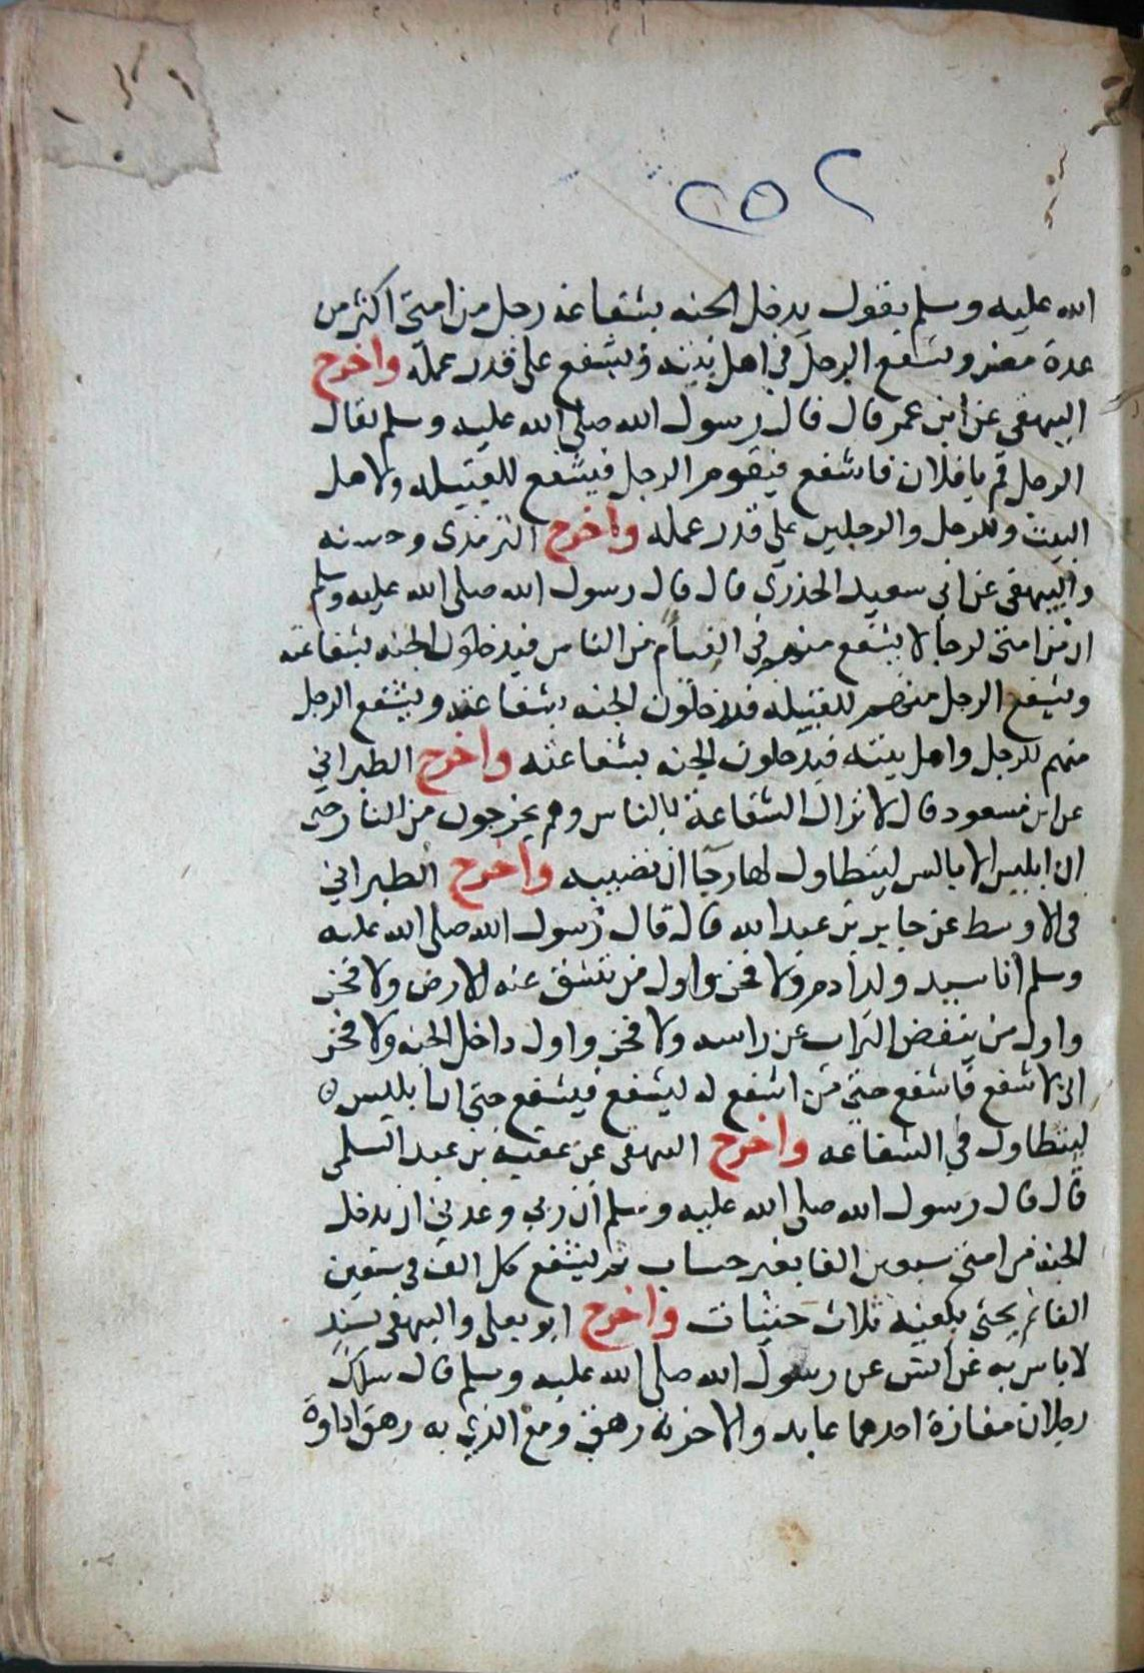 ٢٥٢
الله عليه وسلم يقول يدخل الجنه بشفاعة رجل من امتي اكثر من
عدة مضر ويشفع الرجل في اهل بيته ويشفع على قدر عمله واخرج
البيهقي عن ابن عمر قال قال رسول الله صلى الله عليه وسلم يقال
الرجل قم يا فلان فاشفع فيقوم الرجل فيشفع للقبيله ولاهل
البيت وللرجل والرجلين على قدر عمله واخرج الترمذي وحسنه
والبيهقي عن ابي سعيد الخدري قال قال رسول الله صلى الله عليه وسلم
ان من امتي لرجالا يشفع منهم في الفئام من الناس فيدخلون الجنه بشفاعته
ويشفع الرجل منهم للقبيله فيدخلون الجنه بشفاعته ويشفع الرجل
منهم للرجل واهل بيته فيدخلون الجنه بشفاعته واخرج الطبراني
عن ابن مسعود قال لا تزال الشفاعة بالناس وهم يخرجون من النار حتى
ان ابليس الابالس ليتطاول لها رجآ ان تصيبه واخرج الطبراني
في الاوسط عن جابر بن عبد الله قال قال رسول الله صلى الله عليه
وسلم انا سيد ولد ادم ولا فخر واول من تنشق عنه الارض ولا فخر
واول من ينفض التراب عن راسه ولا فخر واول داخل الجنه ولا فخر
اني لاشفع فاشفع حتى من اشفع له ليشفع فيشفع حتى ان ابليس
ليتطاول في الشفاعه واخرج البيهقي عن عتبة بن عبد السلمي
قال قال رسول الله صلى الله عليه وسلم ان ربي وعدني ان يدخل
الجنه من امتي سبعين الفا بغير حساب ثم ليشفع كل الف في سبعين
الفا ثم يحثي بكفيه ثلاث حثيات واخرج ابو يعلى والبيهقي بسند
لا باس به عن انس عن رسول الله صلى الله عليه وسلم قال سلك
رجلان مفازة احدهما عابد والاخر به رهق ومع الذي به رهق اداوة